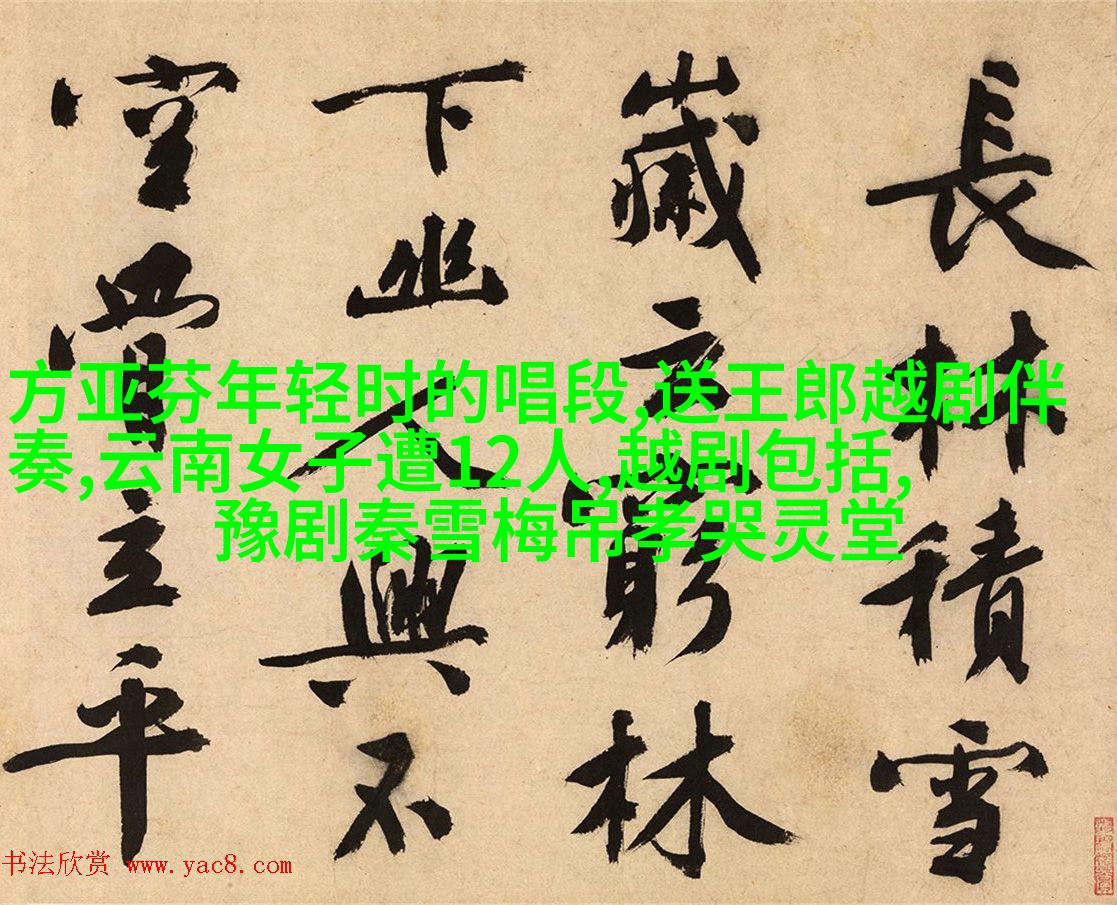 長林積雪
歲云窮林
下幽人興不
空立平
方亚芬年轻时的唱段,送王郎越剧伴
奏,云南女子遭12人,越剧包括,
豫剧秦雪梅吊孝哭灵堂
书法欣赏 www.yac8.com